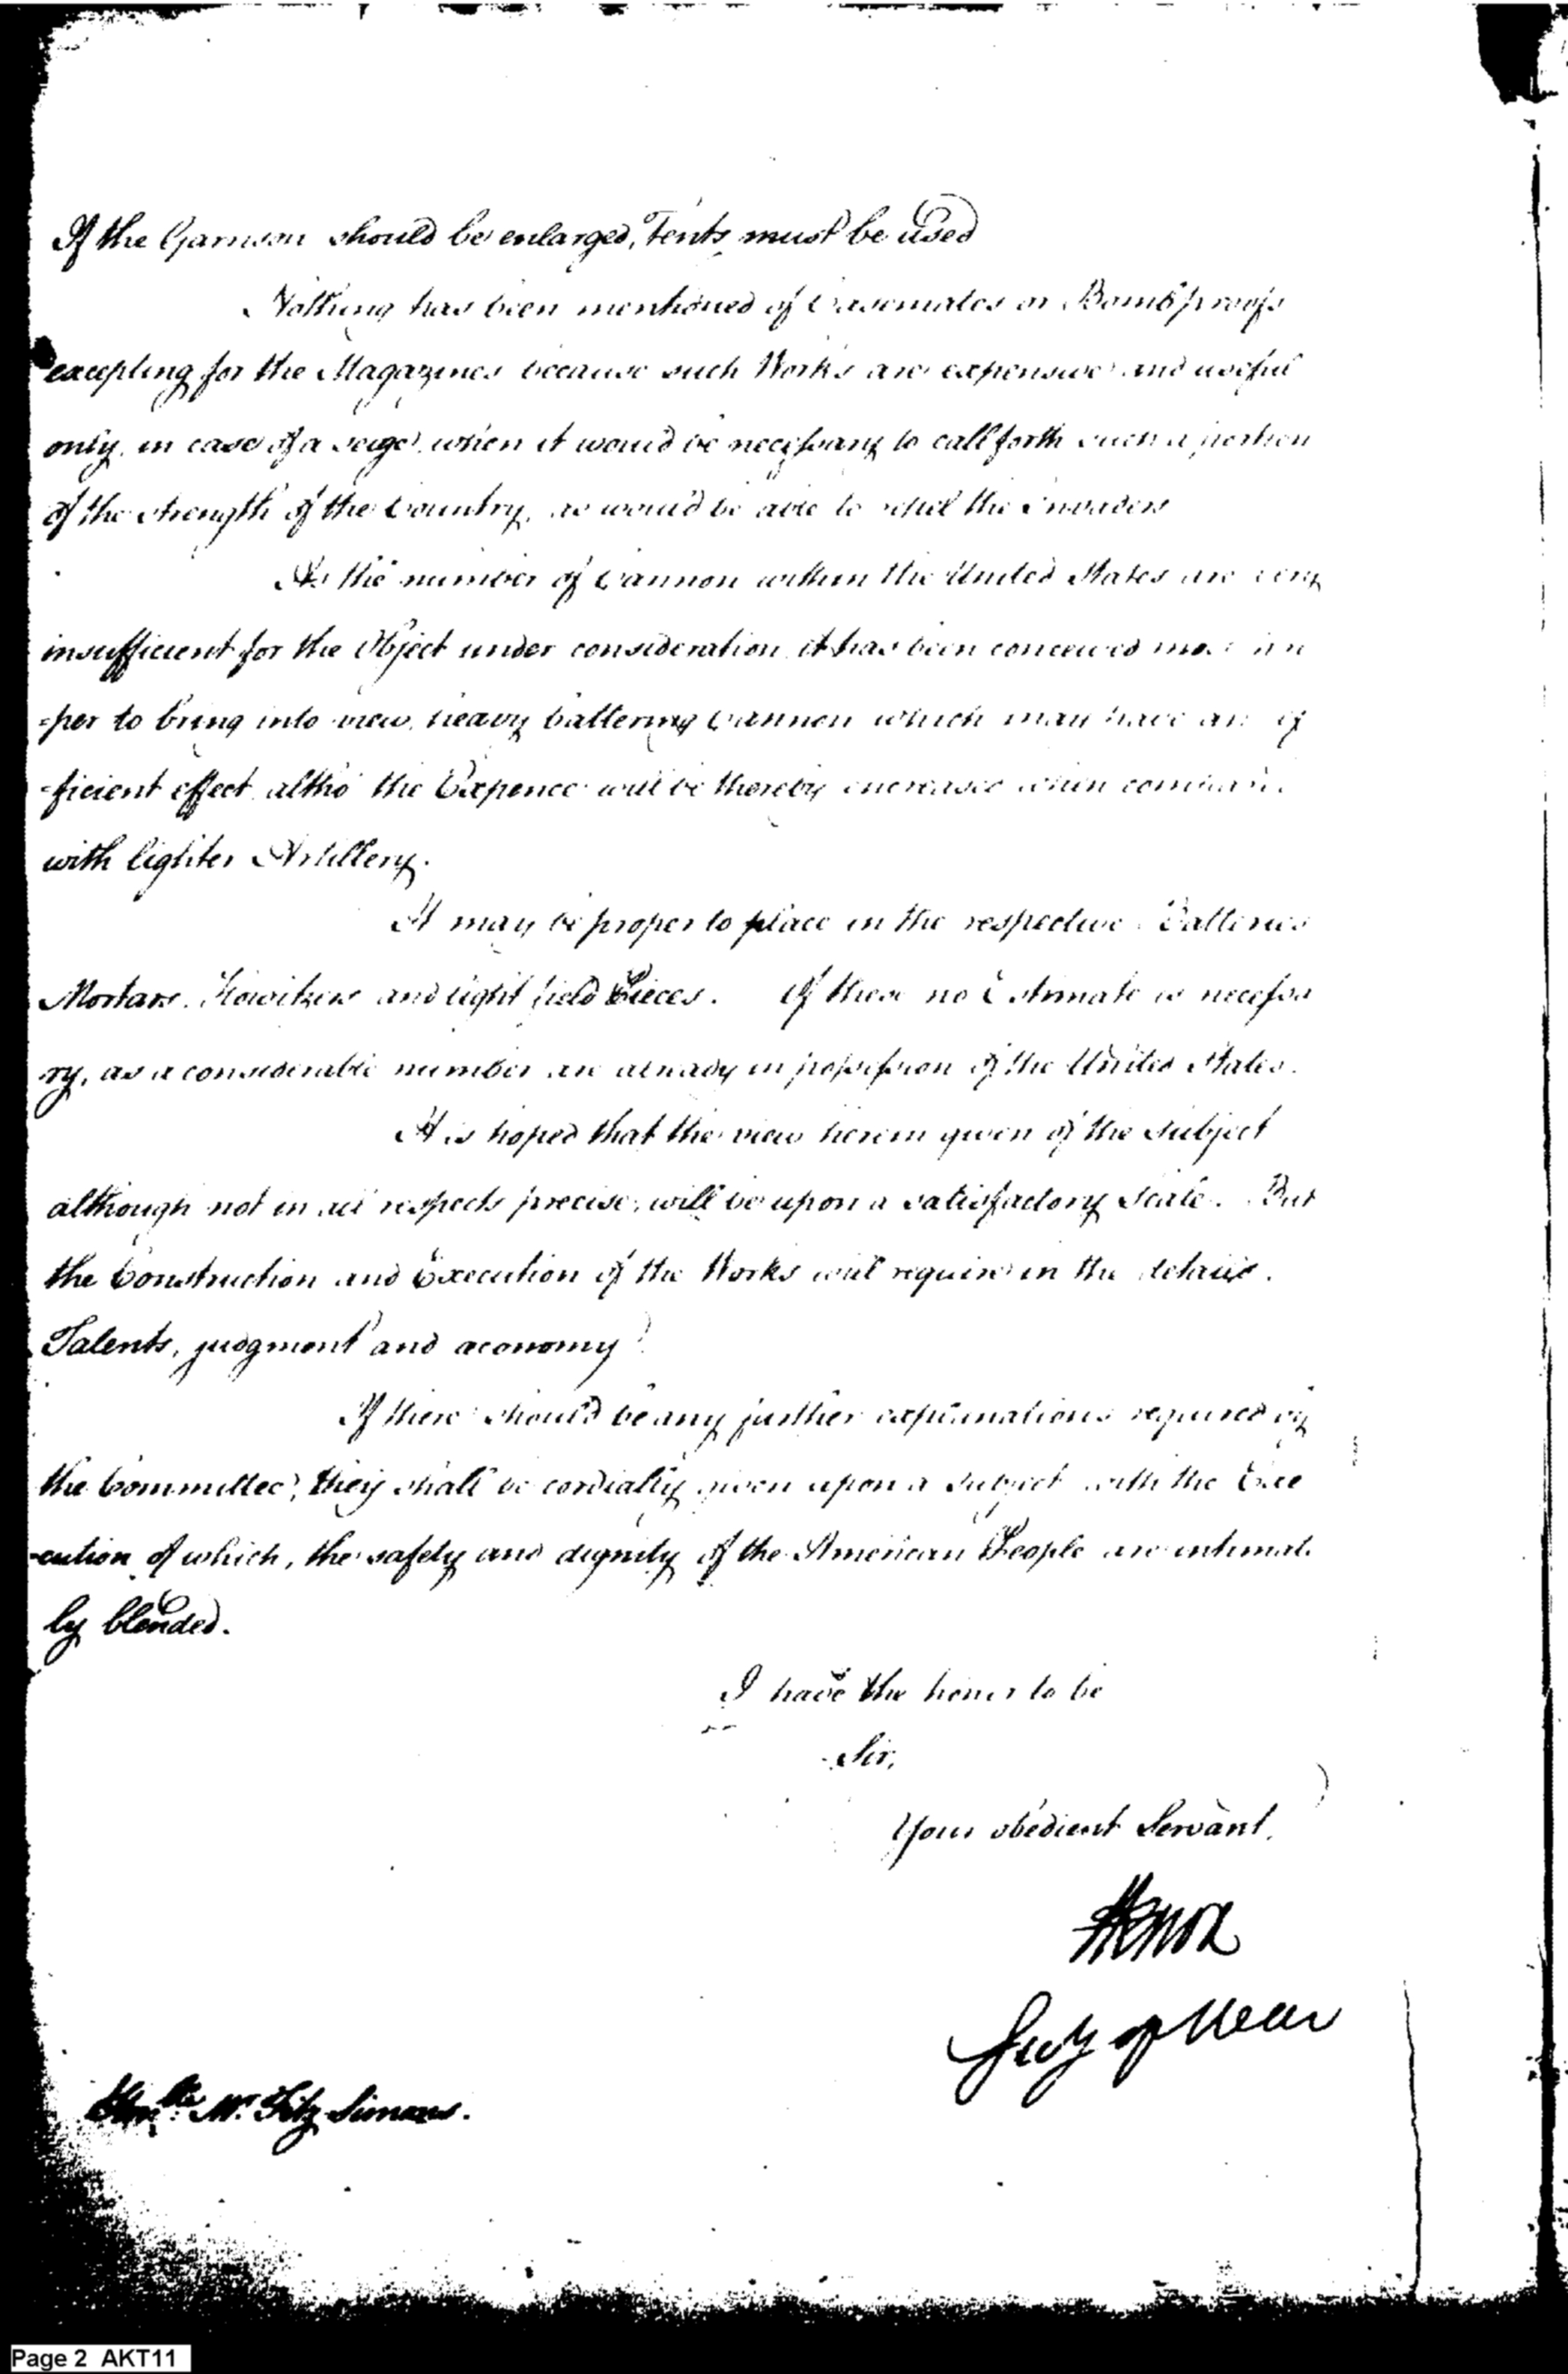 If the Garrison should be enlarged, Tents must be used
Nothing has been mentioned of Casemates or Bombproofs
excepting for the Magazines because such Works are expensive and useful
only in case of a seige when it would be necessary to call forth such a portion
of the strength of the Country, as would be able to repel the invaders
As the number of Cannon within the United States are very
insufficient for the Object under consideration it has been conceived
=per to bring into view heavy battering Cannon which may have an ef
=ficient effect altho the Expence will be thereby increased when
with lighter Artillery.
It may be proper to place in the respective Batteries
Mortars. Howitzers and light field Pieces. Of these no Estimate is necessa
ry, as a considerable number are already in possession of the United States.
It is hoped that the view herein given of the subject
although not in all respects precise, will be upon a satisfactory scale. But
the Construction and Execution of the Works will require in the details.
Talents, judgment and œconomy
If there should be any further explanations required by
the Committee, they shall be cordially given upon a subject with the Exe
=cution of which, the safety and dignity of the American People are intimate
ly blended.
I have the honor to be
Sir,
Your obedient Servant.
HKnox
Secy of War
Honble Mr. Fitz Simons.
Page 2 AKT11